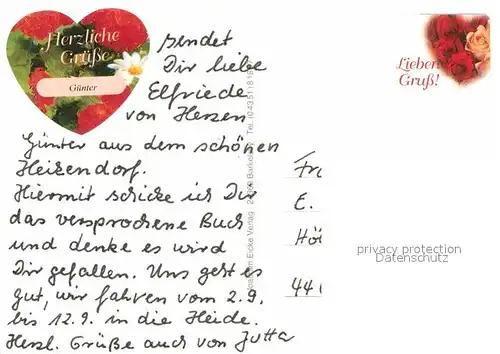 Herzliche
Grüße
Günter
sendet
Dir liebe
Elfriede
von Herzen
Günter aus dem schönen
Heikendorf.
Hiermit schicke ich Dir
das versprochene Buch
und denke es wird
Dir gefallen. Uns geht es
gut, wir fahren vom 2.9.
bis 12.9. in die Heide.
Herzl. Grüße auch von Jutta
Lieber
Gruß!
Fr
E.
Hö
44
privacy protection
Datenschutz
Eicke Verlag
Tel. (04351)